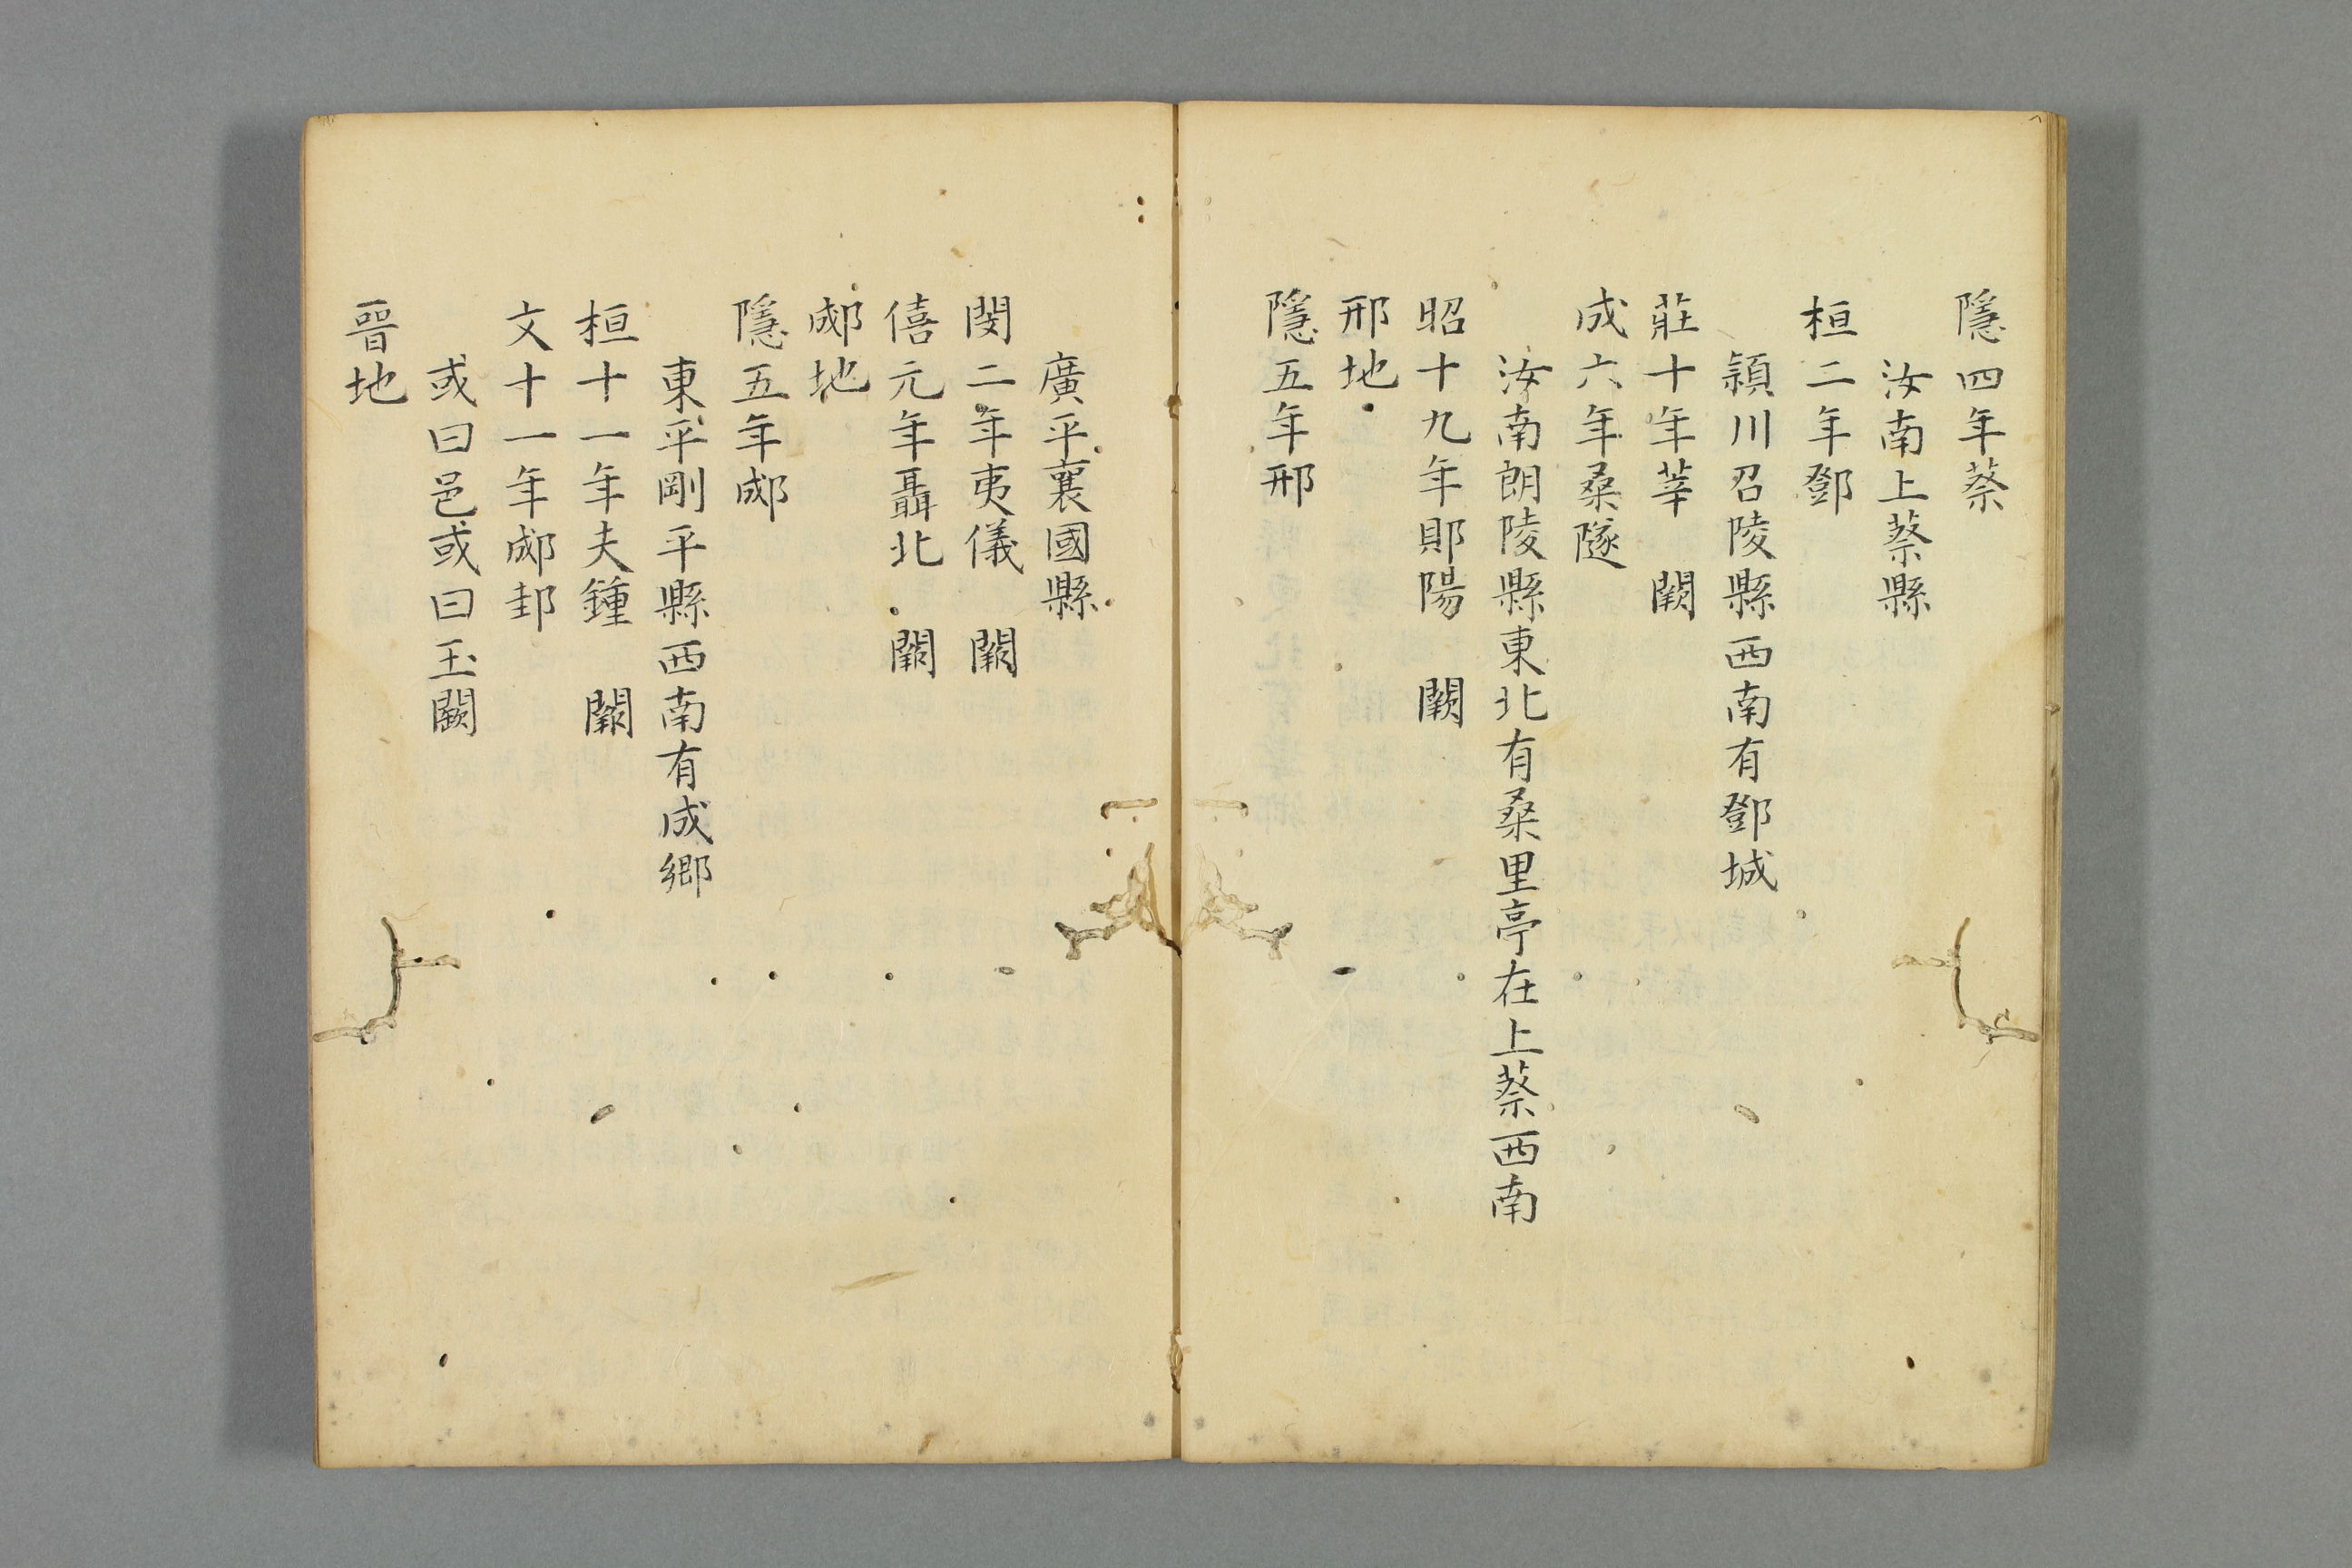 隱四年蔡
汝南上蔡縣
桓二年鄧
潁川召陵縣西南有鄧城
莊十年莘 闕
成六年桑隧
汝南朗陵縣東北有桑里亭在上蔡西南
昭十九年郹陽 闕
邢地
隱五年邢
廣平襄國縣
閔二年夷儀 闕
僖元年聶北 闕
郕地
隱五年郕
東平剛平縣西南有成鄉
桓十一年夫鍾 闕
文十一年郕邽
或曰邑或曰玉闕
晉地